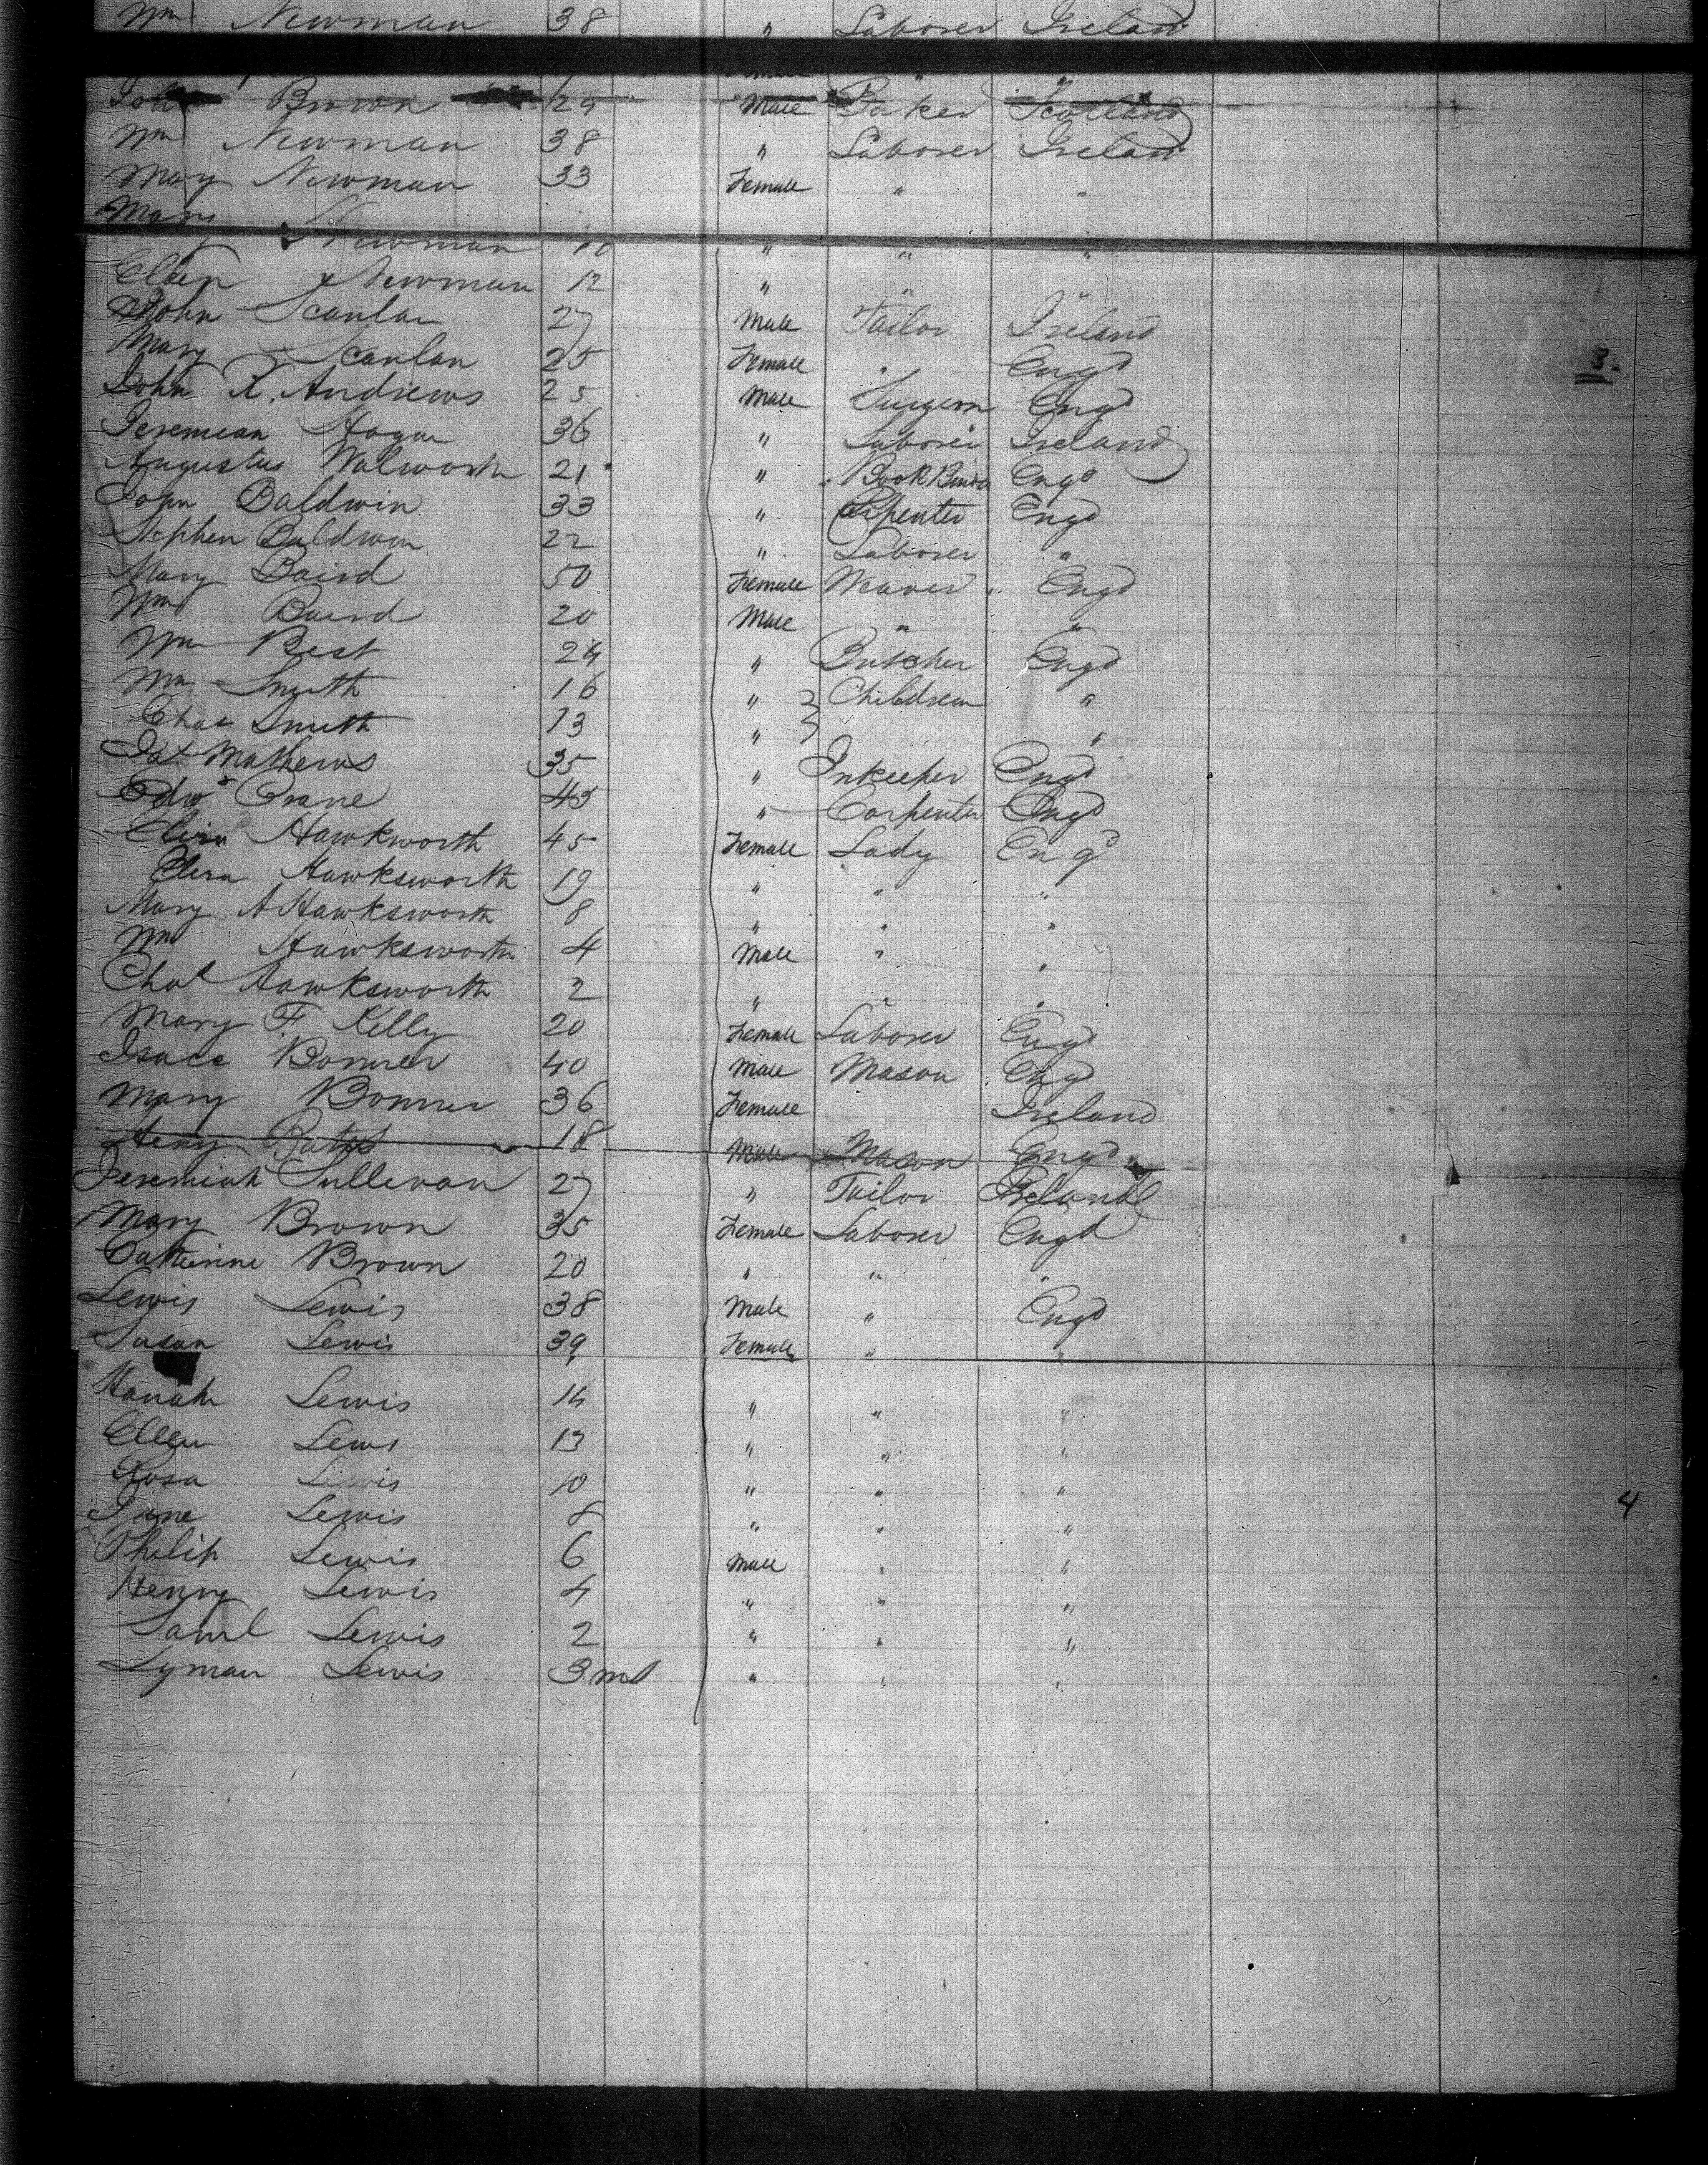 Wm Newman 38 " Laborer Ireland
John Brown 24 Male Baker Scotland
Wm Newman 38 " Laborer Ireland
Mary Newman 33 Female " "
Mary Newman 10 " " "
Ellen Newman 12 " " "
John Scanlan 27 Male Tailor Ireland
Mary Scanlan 25 Female " Engd
3.
John R. Andrews 25 Male Surgeon Engd
Jeremean Hogan 36 " Laborer Ireland
Augustus Walworth 21 " Book Binder Engd
John Baldwin 33 " Carpenter Engd
Stephen Baldwin 22 " Laborer "
Mary Baird 50 Female Weaver Engd
Wm Baird 20 Male " "
Wm Best 24 " Butcher Engd
Wm Smith 16 " Children "
Chas Smith 13 " "
Mathews 35 " Inkeeper Engd
Edwd Crane 45 " Carpenter Engd
Hawkworth 45 Female Lady Engd
Hawksworth 19 " " "
Mary A Hawksworth 8 " " "
Wm Hawksworth 4 Male " "
Chas Hawksworth 2 " " "
Mary F Kelly 20 Female Laborer Engd
Isaac Bonner 40 Male Mason Engd
Mary Bonner 36 Female Ireland
Heny Bates 18 Male Mason Engd
Jeremiah Sullevan 27 " Tailor Ireland
Mary Brown 35 Female Laborer Engd
Catherine Brown 20 " " "
Lewis Lewis 38 Male " Engd
Susan Lewis 39 Female " "
Hanah Lewis 14 " " "
Ellen Lewis 13 " " "
Rosa Lewis 10 " " "
Jane Lewis 8 " " "
4
Philip Lewis 6 Male " "
Henry Lewis 4 " " "
Saml Lewis 2 " " "
Lyman Lewis 3 ms " " "